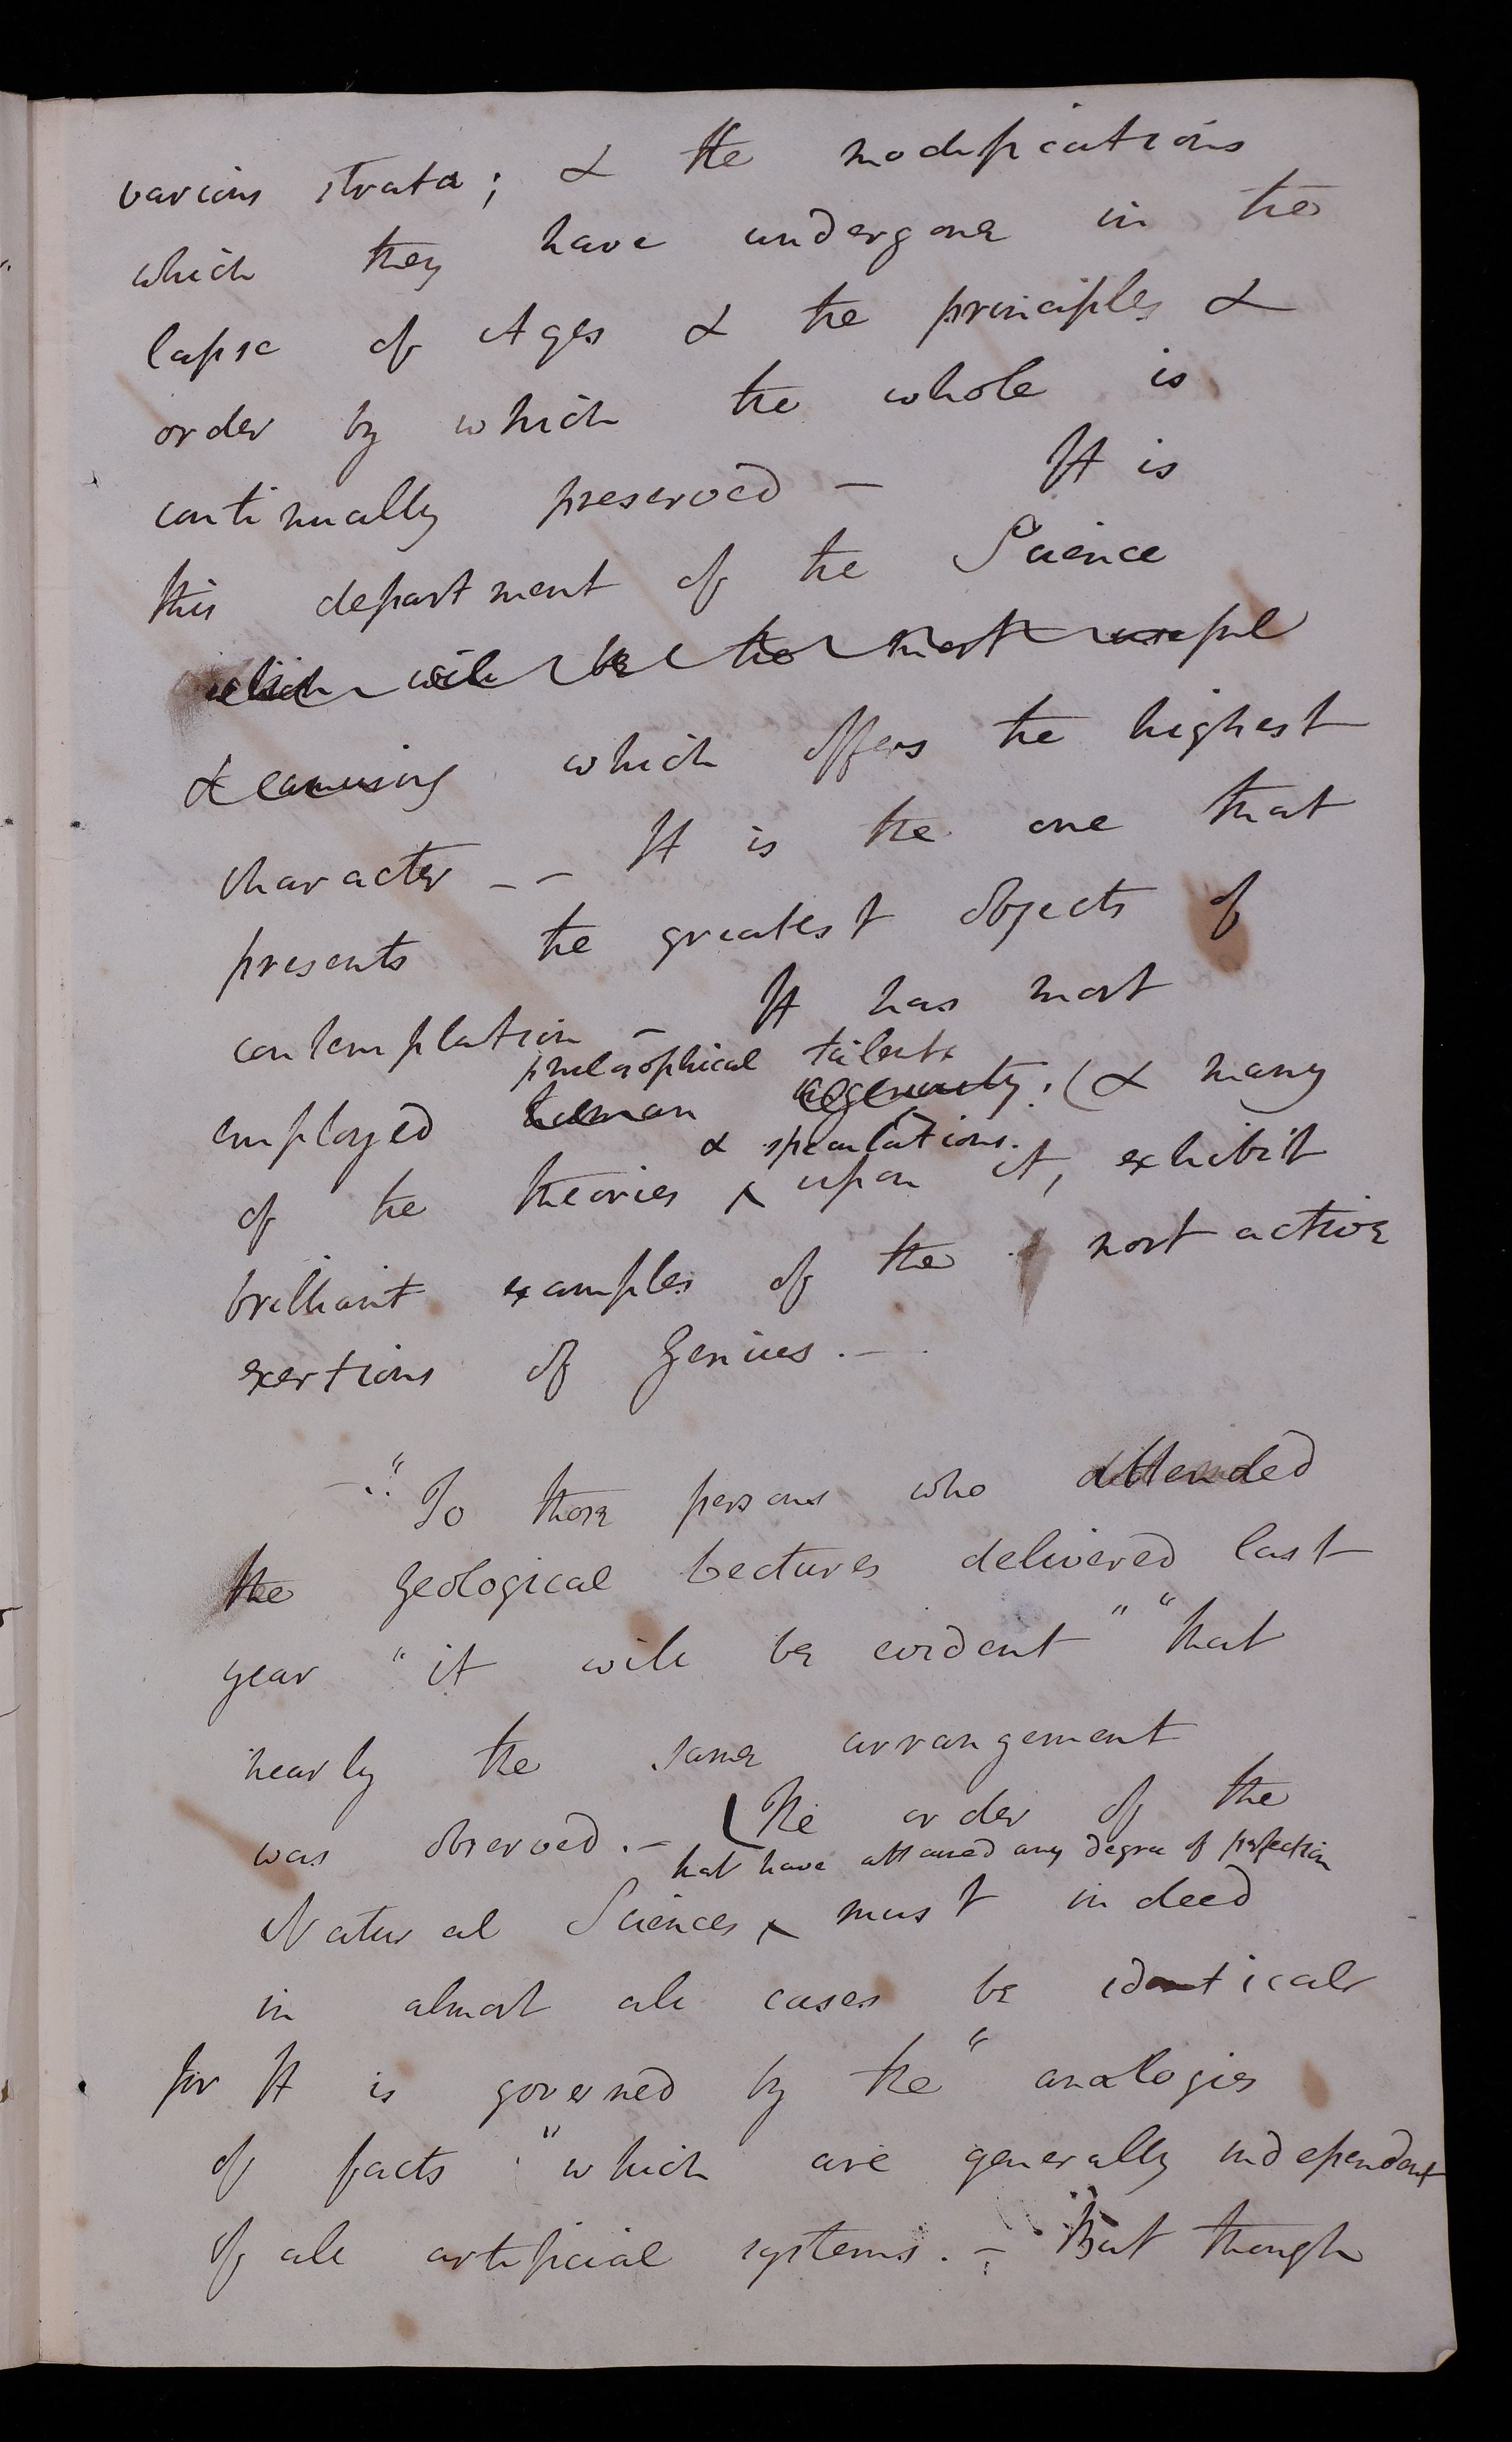 various strata; & the modifications
which they have undergone in the
lapse of Ages & the principles &
order by which the whole is
continually preserved – It is
this department of the Science
which will be the most useful
& amusing which offers the highest
character – – It is the one that
presents the greatest objects of
contemplation – It has most
philosophical talents
employed human ingenuity. (& many
& speculations.
of the theories ^ upon it, exhibit
brilliant examples of the most active
exertions of Genius. –
– " To those persons who attended
the Geological Lectures delivered last
year "it will be evident" "that
nearly the same arrangement
was observed. – (The order of the
that have attained any degree of perfection
Natural Sciences ^ must indeed
in almost all cases be identical
for It is governed by the "analogies
of facts" which are generally independent
of all artificial systems. – But though